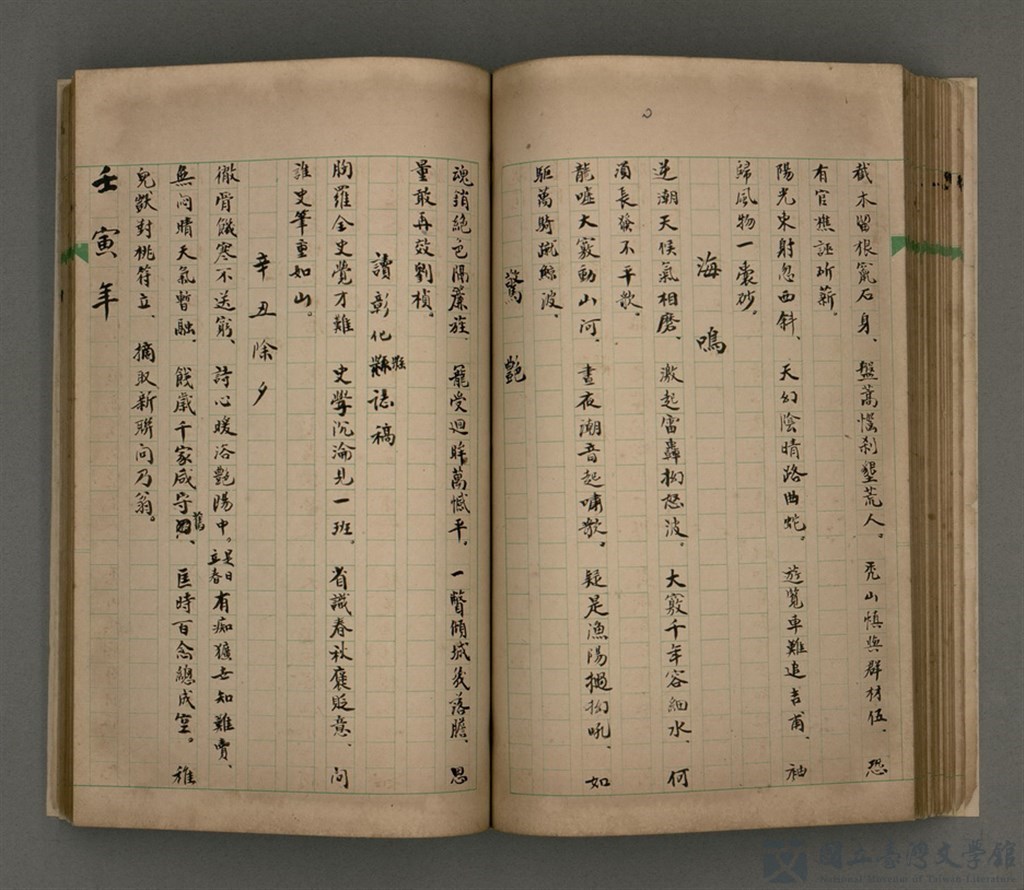 截木留根窾石身、盤蒿慢剎墾荒人。禿山慎與群材伍、恐
有官樵誤斫薪。
陽光朱射忽西斜、天幻陰晴路曲蛇。遊覽車難追吉甫、袖
歸風物一囊妙。
海鳴
逆潮天候氣相磨、激起雷轟拗怒波。大竅千年容細水、何
須長發不平歌。
龍噓大竅動山河、晝夜潮音起嘯歌。疑是漁陽撾拗吼、如
驅萬騎蹴鯨波。
驚艷
魂銷絕色隔簾旌、寵受迴眸萬憾平。一瞥傾城幾落膽、思
量敢再效劉楨。
讀彰化縣誌稿
胸羅全史覺才難 史學沉淪見一班。省識春秋褒貶意、問
誰史筆重如山。
辛丑除夕
徹骨饑寒不送窮、詩心暖浴艷陽中。是日立春有痴獷去知難賣、
無悶晴天氣暫融。餞歲千家咸守舊、匡時百念總成空。稚
兒獃對桃符立、摘取新聯問乃翁。
壬寅年
國立臺灣文學館
National Museum of Taiwan Literature